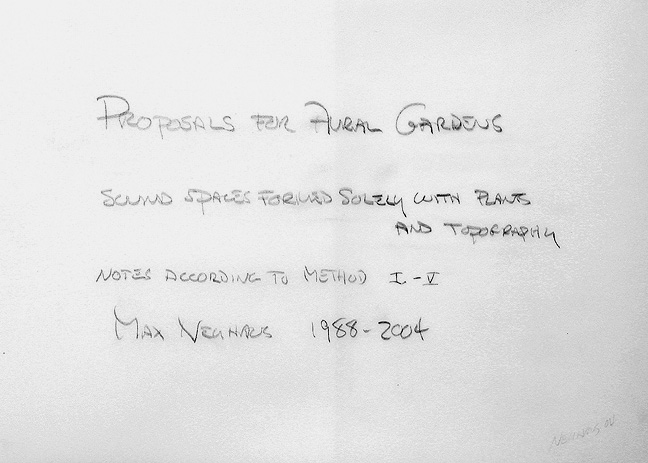 PROPOSALS FOR AURAL GARDENS
SOUND SPACES FORMED SOLELY WITH PLANTS
AND TOPOGRAPHY
NOTES ACCORDING TO METHOD I - V
MAX NEUHAUS 1988-2004